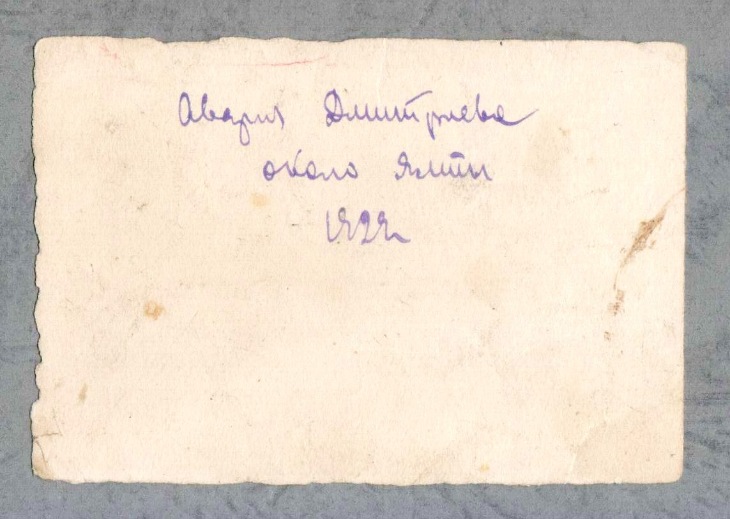 Авария Дмитриева
около Ялты